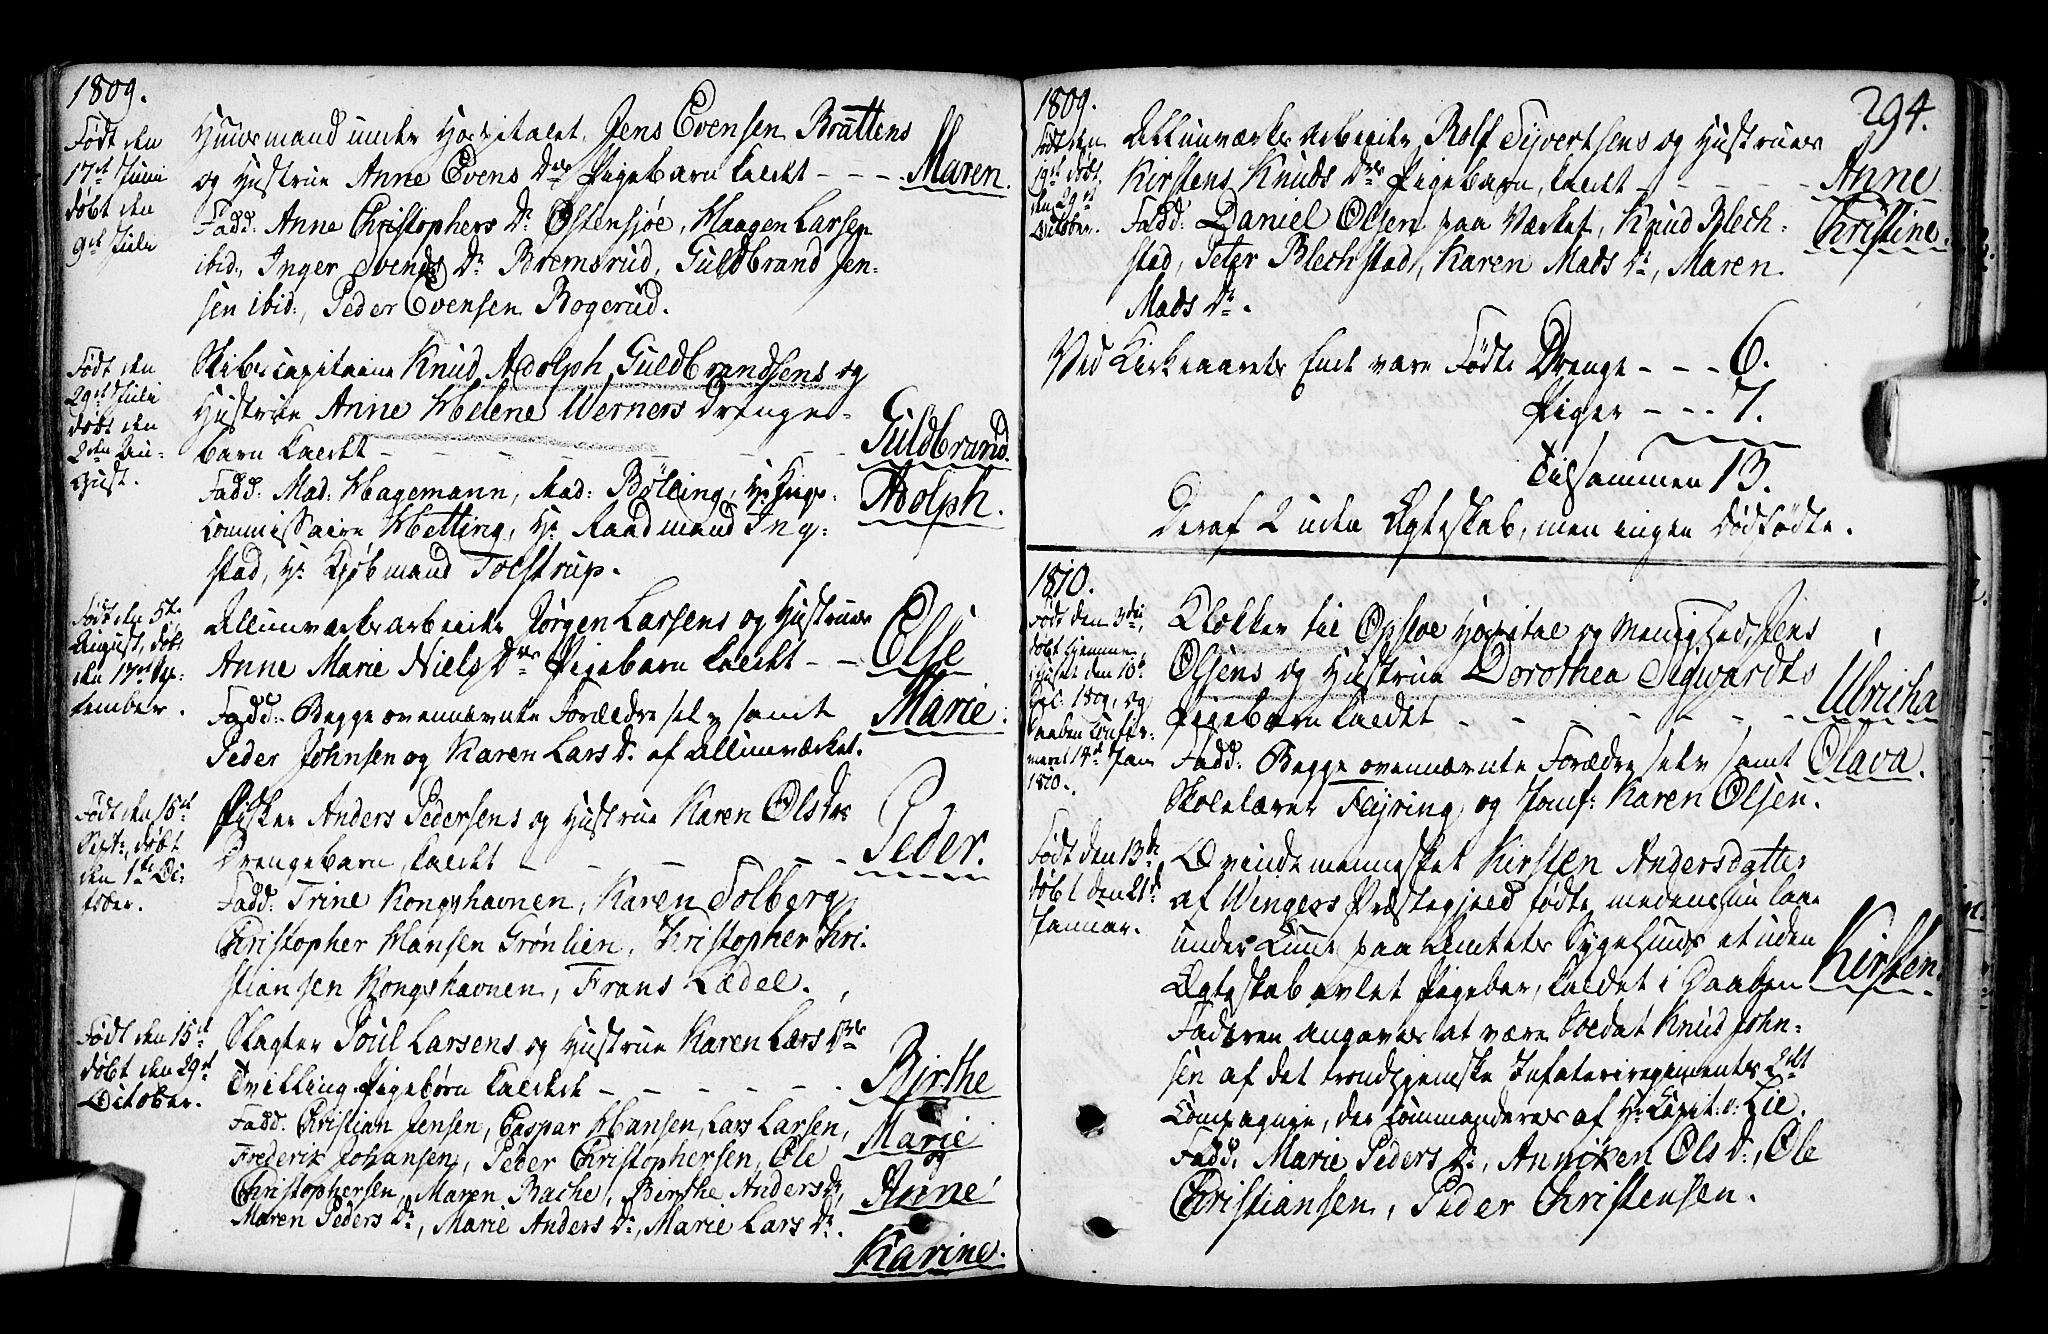 1809.
Født den
17de Juni
døbt den
9de Julii
Huusmand under Hospitalet Jens Evensen Brattens
og Hustrue Anne Evens Drs Pigebarn kaldt - - - Maren.
Fadd: Anne Christophers Dr Østensjøe, Haagen Larsen
ibid:, Inger Svends Dr Bremsrud, Guldbrand Jen-
sen ibid:, Peder Evensen Bogerud.
Født den
29de Julii
døbt den
2den Au-
gust.
Skibscapitaine Knud Adolph Guldbrandsens og
Hustrue Anne Helene Werners Drenge-
barn kaldt - - - Guldbrand
Adolph.
Fadd: Mad: Hagemann, Mad: Bølling, Hr Krigs-
commissaire Hetting, Hr Raadmand Ing-
stad, Hr Kjøbmand Tolstrup.
Født den 5te
August, døbt
den 17de Sep-
tember.
Allunværksarbeider Jørgen Larsens og Hustrues
Anne Marie Niels Drs Pigebarn kaldt - - Else
Marie.
Fadd: Begge ovennævnte Forældre selv samt
Peder Johnsen og Karen Lars Dr af Allunværket.
Født den 15de
Sept:, døbt
den 1ste Oc-
tober.
Fisker Anders Pedersens og Hustrue Karen Ols Drs
Drengebarn, kaldt - - - Peder.
Fadd: Trine Kongshavnen, Karen Solberg,
Christopher Hansen Grønlien, Christopher Chri-
stiansen Kongshavnen, Frans Lædel.
Født den 15de
døbt den 29de
October.
Slagter Poul Larsens og Hustrue Karen Lars Drs
Tvilling Pigebørn kaldet - - - Birthe
Marie
og
Anne
Karine.
Fadd: Christian Jensen, Caspar Hansen, Lars Larsen,
Frederik Johansen, Peder Christophersen, Ole
Christophersen, Maren Bache, Birthe Anders Dr,
Maren Peders Dr, Marie Anders Dr, Marie Lars Dr.
294.
1809.
Født den
19de døbt
den 29de
October.
Allunværksarbeider Rolf Syvertsens og Hustrues
Kirstens Knuds Drs Pigebarn, kaldt - - - Anne
Christine.
Fadd: Daniel Olsen paa Værket, Knud Blech-
stad, Peter Blechstad, Karen Mads Dr, Maren
Mads Dr.
Ved Kirkeaarets Ende vare Fødte Drenge - - - 6.
Piger - - - 7.
Tilsammen 13.
Deraf 2 uden Ægteskab, men ingen dødfødte.
1810.
Født den 3die,
døbt hjemme
i Huset den 10de
Dec: 1809, og
Daaben confir-
meret 14de Jan
1810.
Klokker til Opsloe Hospital og Menighed, Jens
Olsens og Hustrue Dorothea Sigwardts
Pigebarn kaldet - - - Ulricha
Olava.
Fadd: Begge ovennævnte Forældre selv samt
Skolelærer Fejring, og Jomf: Karen Olsen.
Født den 13de
døbt den 21de
Januar.
Qvindemennesket Kirsten Andersdatter
af Wingers Præstegjeld fødte, medens hun laae
under Cuur paa Amtets Sygehuus et uden
Ægteskab avlet Pigebarn, kaldet i Daaben Kirsten
Faderen angaves at være Soldat Knud John-
sen af det trondhjemske Infanteriregiments 2det
Compagnie, der commanderes af Hr Capit: v: Lie.
Fadd: Marie Peders Dr, Anniken Ols Dr, Ole
Christiansen, Peder Christensen.